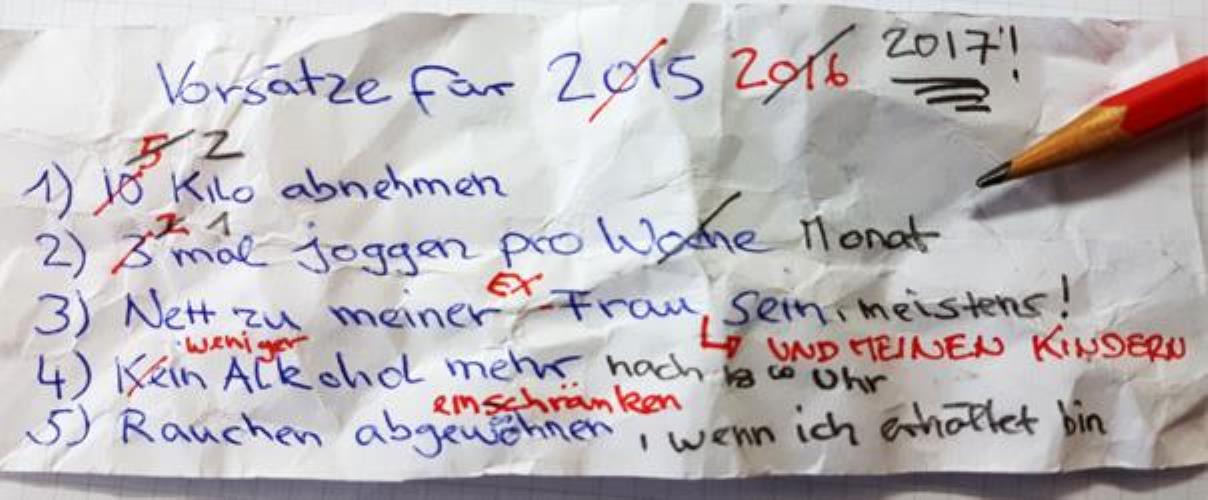 Vorsätze für 2015 2016 2017!
5 2
1) 10 Kilo abnehmen
2 1
2) 3 mal joggen pro Woche Monat
EX
3) Nett zu meiner -Frau sein, meistens!
↳ UND MEINEN KINDERN
weniger
4) Kein Alkohol mehr nach Uhr
einschränken
5) Rauchen abgewöhnen, wenn ich erkältet bin